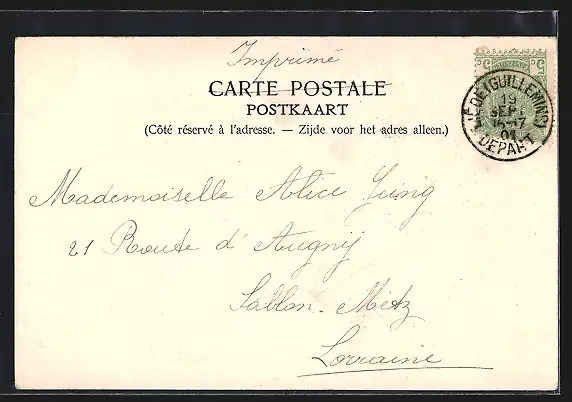 Imprimé
CARTE POSTALE
POSTKAART
(Côté réservé à l'adresse. — Zijde voor het adres alleen.)
5 c
LIÈGE (GUILLEMINS)
19
SEPT
DÉPART
Mademoiselle Alice Jung
21 Route d'Augny
Sablon-Metz
Lorraine